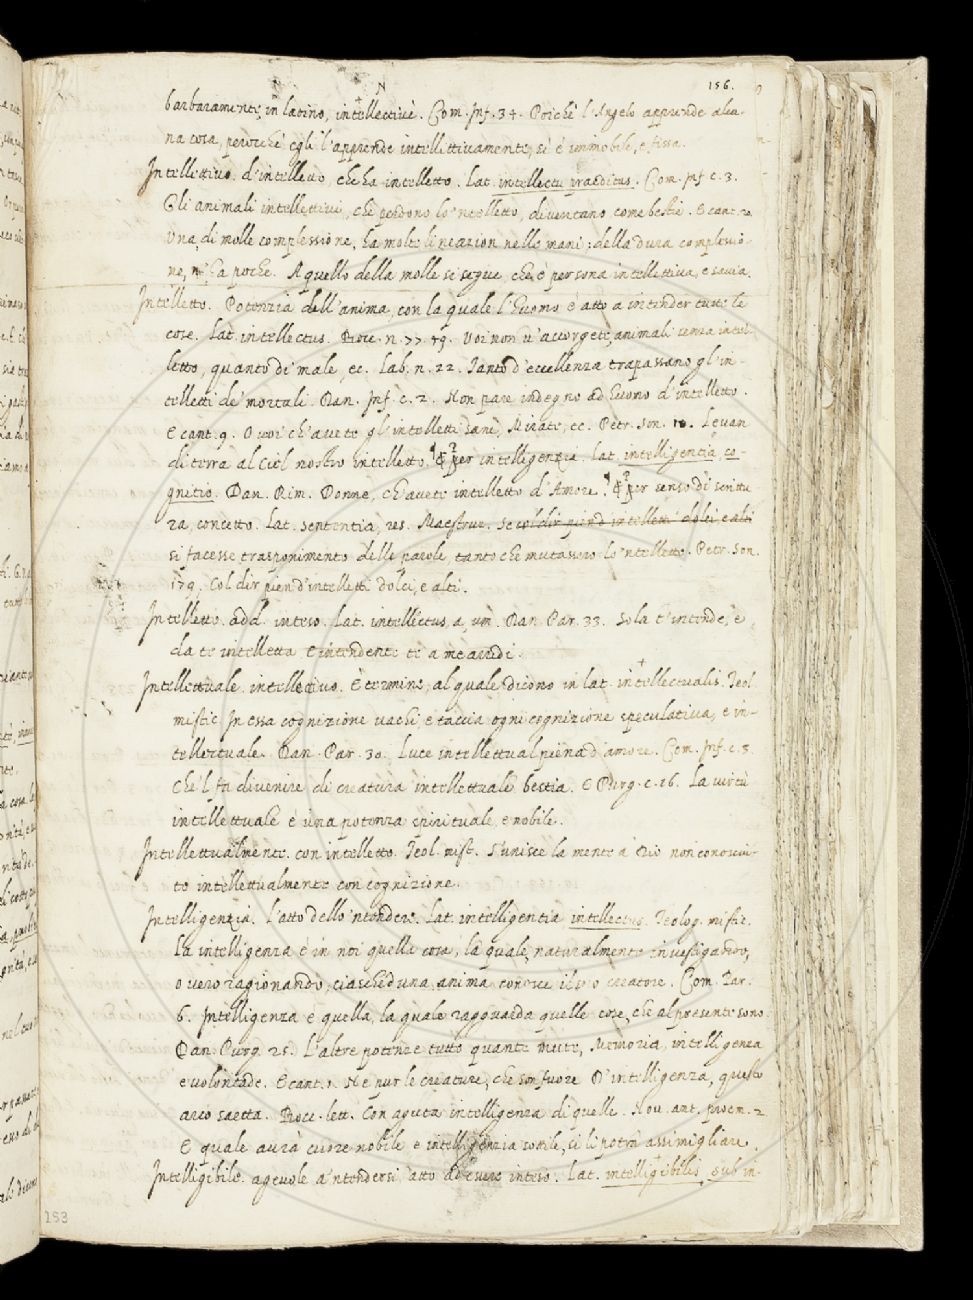 N
156.
barbaramente, in latino, intellectivè. Com. Inf. 34. Poichè l'Angelo apprende alcu-
na cosa, perocchè egli l'apprende intellettivamente, si è immobile, e fissa.
Intellettivo. d'intelletto, che ha intelletto. Lat. intellectu praeditus. Com. Inf. c. 3.
Gli animali intellettivi, che perdono lo 'ntelletto, diventano come bestie. E cant. 20.
Una, di molle complessione, ha molte lineazion nelle mani: della dura complessio-
ne, n' ha poche. A quello della molle si segue, che è persona intellettiva, e savia.
Intelletto. Potenzia dell'anima, con la quale l'huomo è atto a intender tutte le
cose. Lat. intellectus. Bocc. n. 77. 59. Voi non v'accorgete, animali senza intel-
letto, quanto di male, ec. Lab. n. 22. Tanto d'eccellenza trapassano gl'in-
telletti de' mortali. Dan. Inf. c. 2. Non pare indegno ad huomo d'intelletto.
E cant. 9. O voi ch'avete gl'intelletti sani, Mirate, ec. Petr. Son. 10. Levan
di terra al Ciel nostro intelletto. ¶ Per intelligenzia. Lat. intelligentia, co-
gnitio. Dan. Rim. Donne, ch'avete intelletto d'Amore. ¶ Per senso di scrittu-
ra, concetto. Lat. sententia, res. Maestruz. Se col dir pien d'intelletti dolci, e alti
si facesse trasponimento delle parole, tanto che mutassero lo 'ntelletto. Petr. Son.
179. Col dir pien d'intelletti dolci, e alti.
Intelletto. add. inteso. Lat. intellectus, a, um. Dan. Par. 33. Sola t'intende, e
da te intelletta E intendente te a me arridi.
Intellettuale. intellettivo. E termine, al quale dicono in lat. intellectualis. Teol.
mistic. In essa cognizione vachi, e taccia ogni cognizione speculativa, e in-
tellettuale. Dan. Par. 30. Luce intellettual piena d'amore. Com. Inf. c. 5.
Che 'l fa divenire di creatura intellettuale bestia. E Purg. c. 16. La virtù
intellettuale è una potenza spirituale, e nobile.
Intellettualmente. con intelletto. Teol. mist. S'unisce la mente a Dio non conosciu-
to intellettualmente con cognizione.
Intelligenzia. L'atto dello 'ntendere. Lat. intelligentia intellectus. Teolog. mistic.
La intelligenza è in noi quella cosa, la quale, naturalmente investigando,
o vero ragionando, ciascheduna anima conosce il suo creatore. Com. Par.
6. Intelligenza è quella, la quale ragguarda quelle cose, che al presente sono.
Dan. Purg. 25. L'altre potenze tutte quante mute, Memoria, intelligenza
e volontade. E cant. 1. Ne pur le creature, che son fuore D'intelligenza, questo
arco saetta. Bocc. lett. Con aguta intelligenza di quelle. Nov. ant. proem. 2
E quale avrà cuore nobile e intelligenzia sottile, si li potrà assimigliare.
Intelligibile. agevole a 'ntendersi, atto ad essere inteso. Lat. intelligibilis, sub in-
153